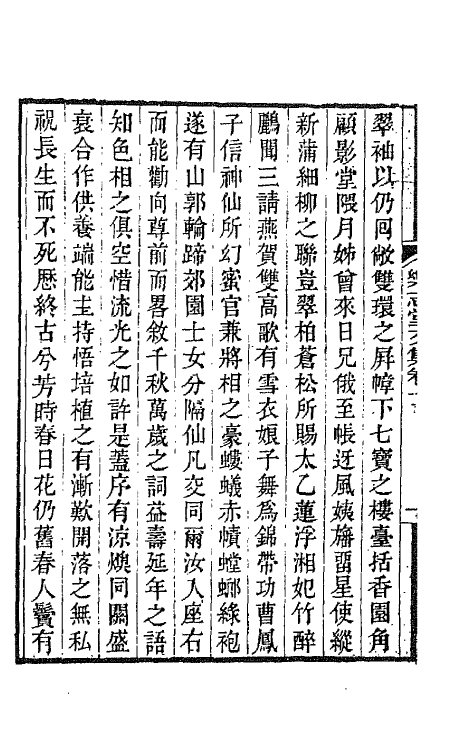 翠袖以仍囘敞雙環之屛幛下七寶之樓臺括香園角
顧影堂隈月姊曾來日兄俄至帳迓風姨旛畱星使縱
新蒲細柳之聯豈翠柏蒼松所賜太乙蓮浮湘妃竹醉
鸝聞三請燕賀雙高歌有雪衣娘子舞爲錦帶功曹鳳
子信神仙所幻蜜官兼將相之豪螻蟻赤幘螳螂綠袍
遂有山郭輪蹄郊園士女分隔仙凡交同爾汝入座右
而能勸向尊前而畧敘千秋萬歲之詞益壽延年之語
知色相之俱空惜流光之如許是蓋序有涼燠同關盛
衰合作供養端能主持悟培植之有漸歎開落之無私
祝長生而不死歷終古兮芳時春日花仍舊春人鬢有
樂志堂文集卷一